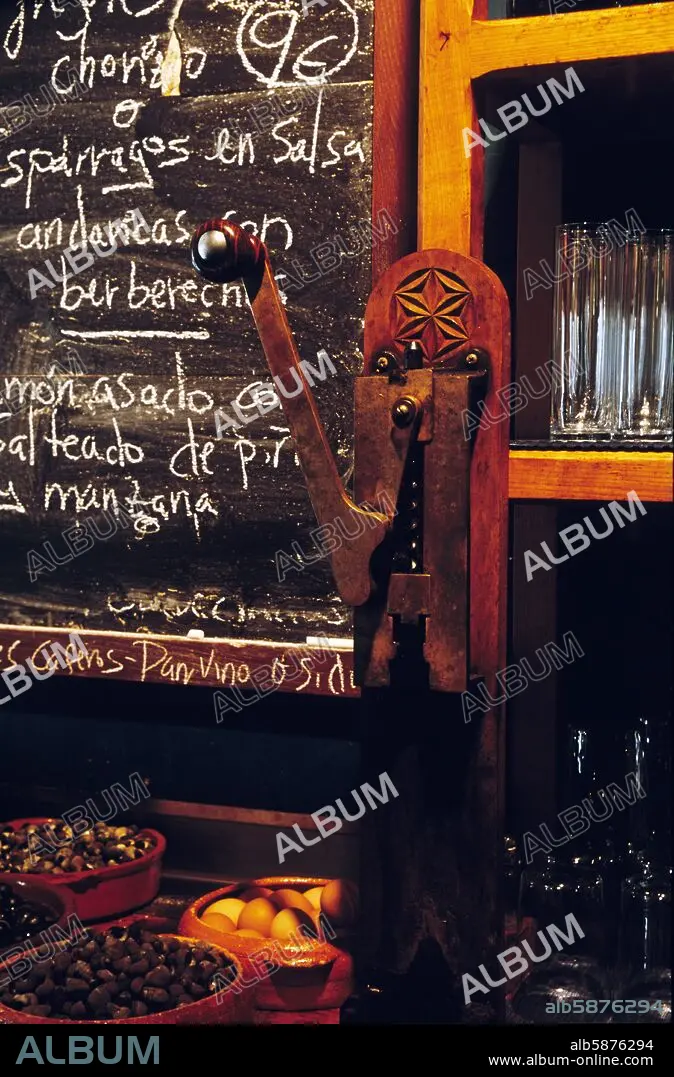 chorizo 9€
o
espárragos en Salsa
andaricas con
berberechos
món asado o
Salteado de
y manzana
Cafés-Pan Vino o sidr
ALBUM
alb5876294
ALBUM
alb5876294
www.album-online.com